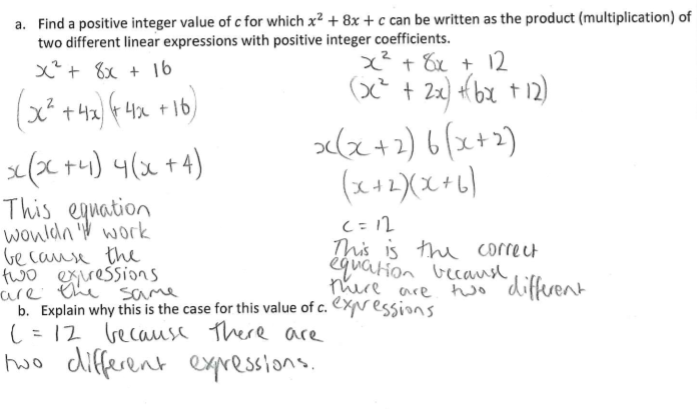 a. Find a positive integer value of c for which x² + 8x + c can be written as the product (multiplication) of
two different linear expressions with positive integer coefficients.
x² + 8x + 16
(x² + 4x)(+ 4x + 16)
x(x + 4) 4(x + 4)
This equation
wouldn't work
because the
two expressions
are the same
x² + 8x + 12
(x² + 2x) + (6x + 12)
x(x + 2) 6(x + 2)
(x + 2)(x + 6)
c = 12
This is the correct
equation because
there are two different
expressions
b. Explain why this is the case for this value of c.
C = 12 because there are
two different expressions.